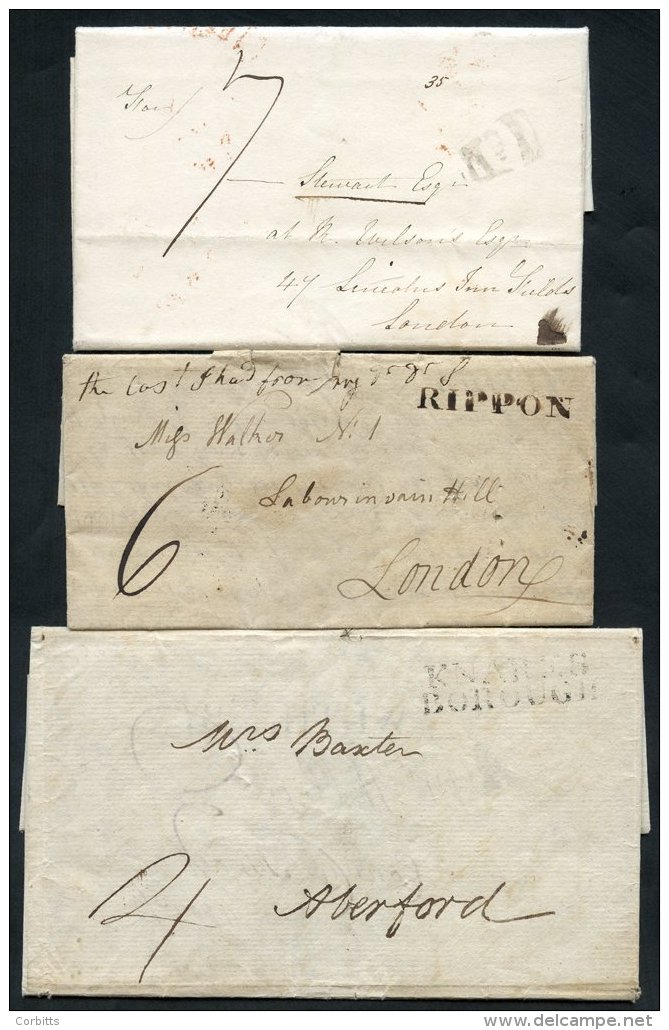 7
35
Stewart Esqr
at R. Wilson's Esqr
47 Lincolns Inn Fields
London
No 1
the last I had from my
RIPPON
Miss Walker No 1
6
Labourinvain Hill
London
KNARES
BOROUGH
Mrs Baxter
4
Aberford
Corbitts
www.delcampe.net